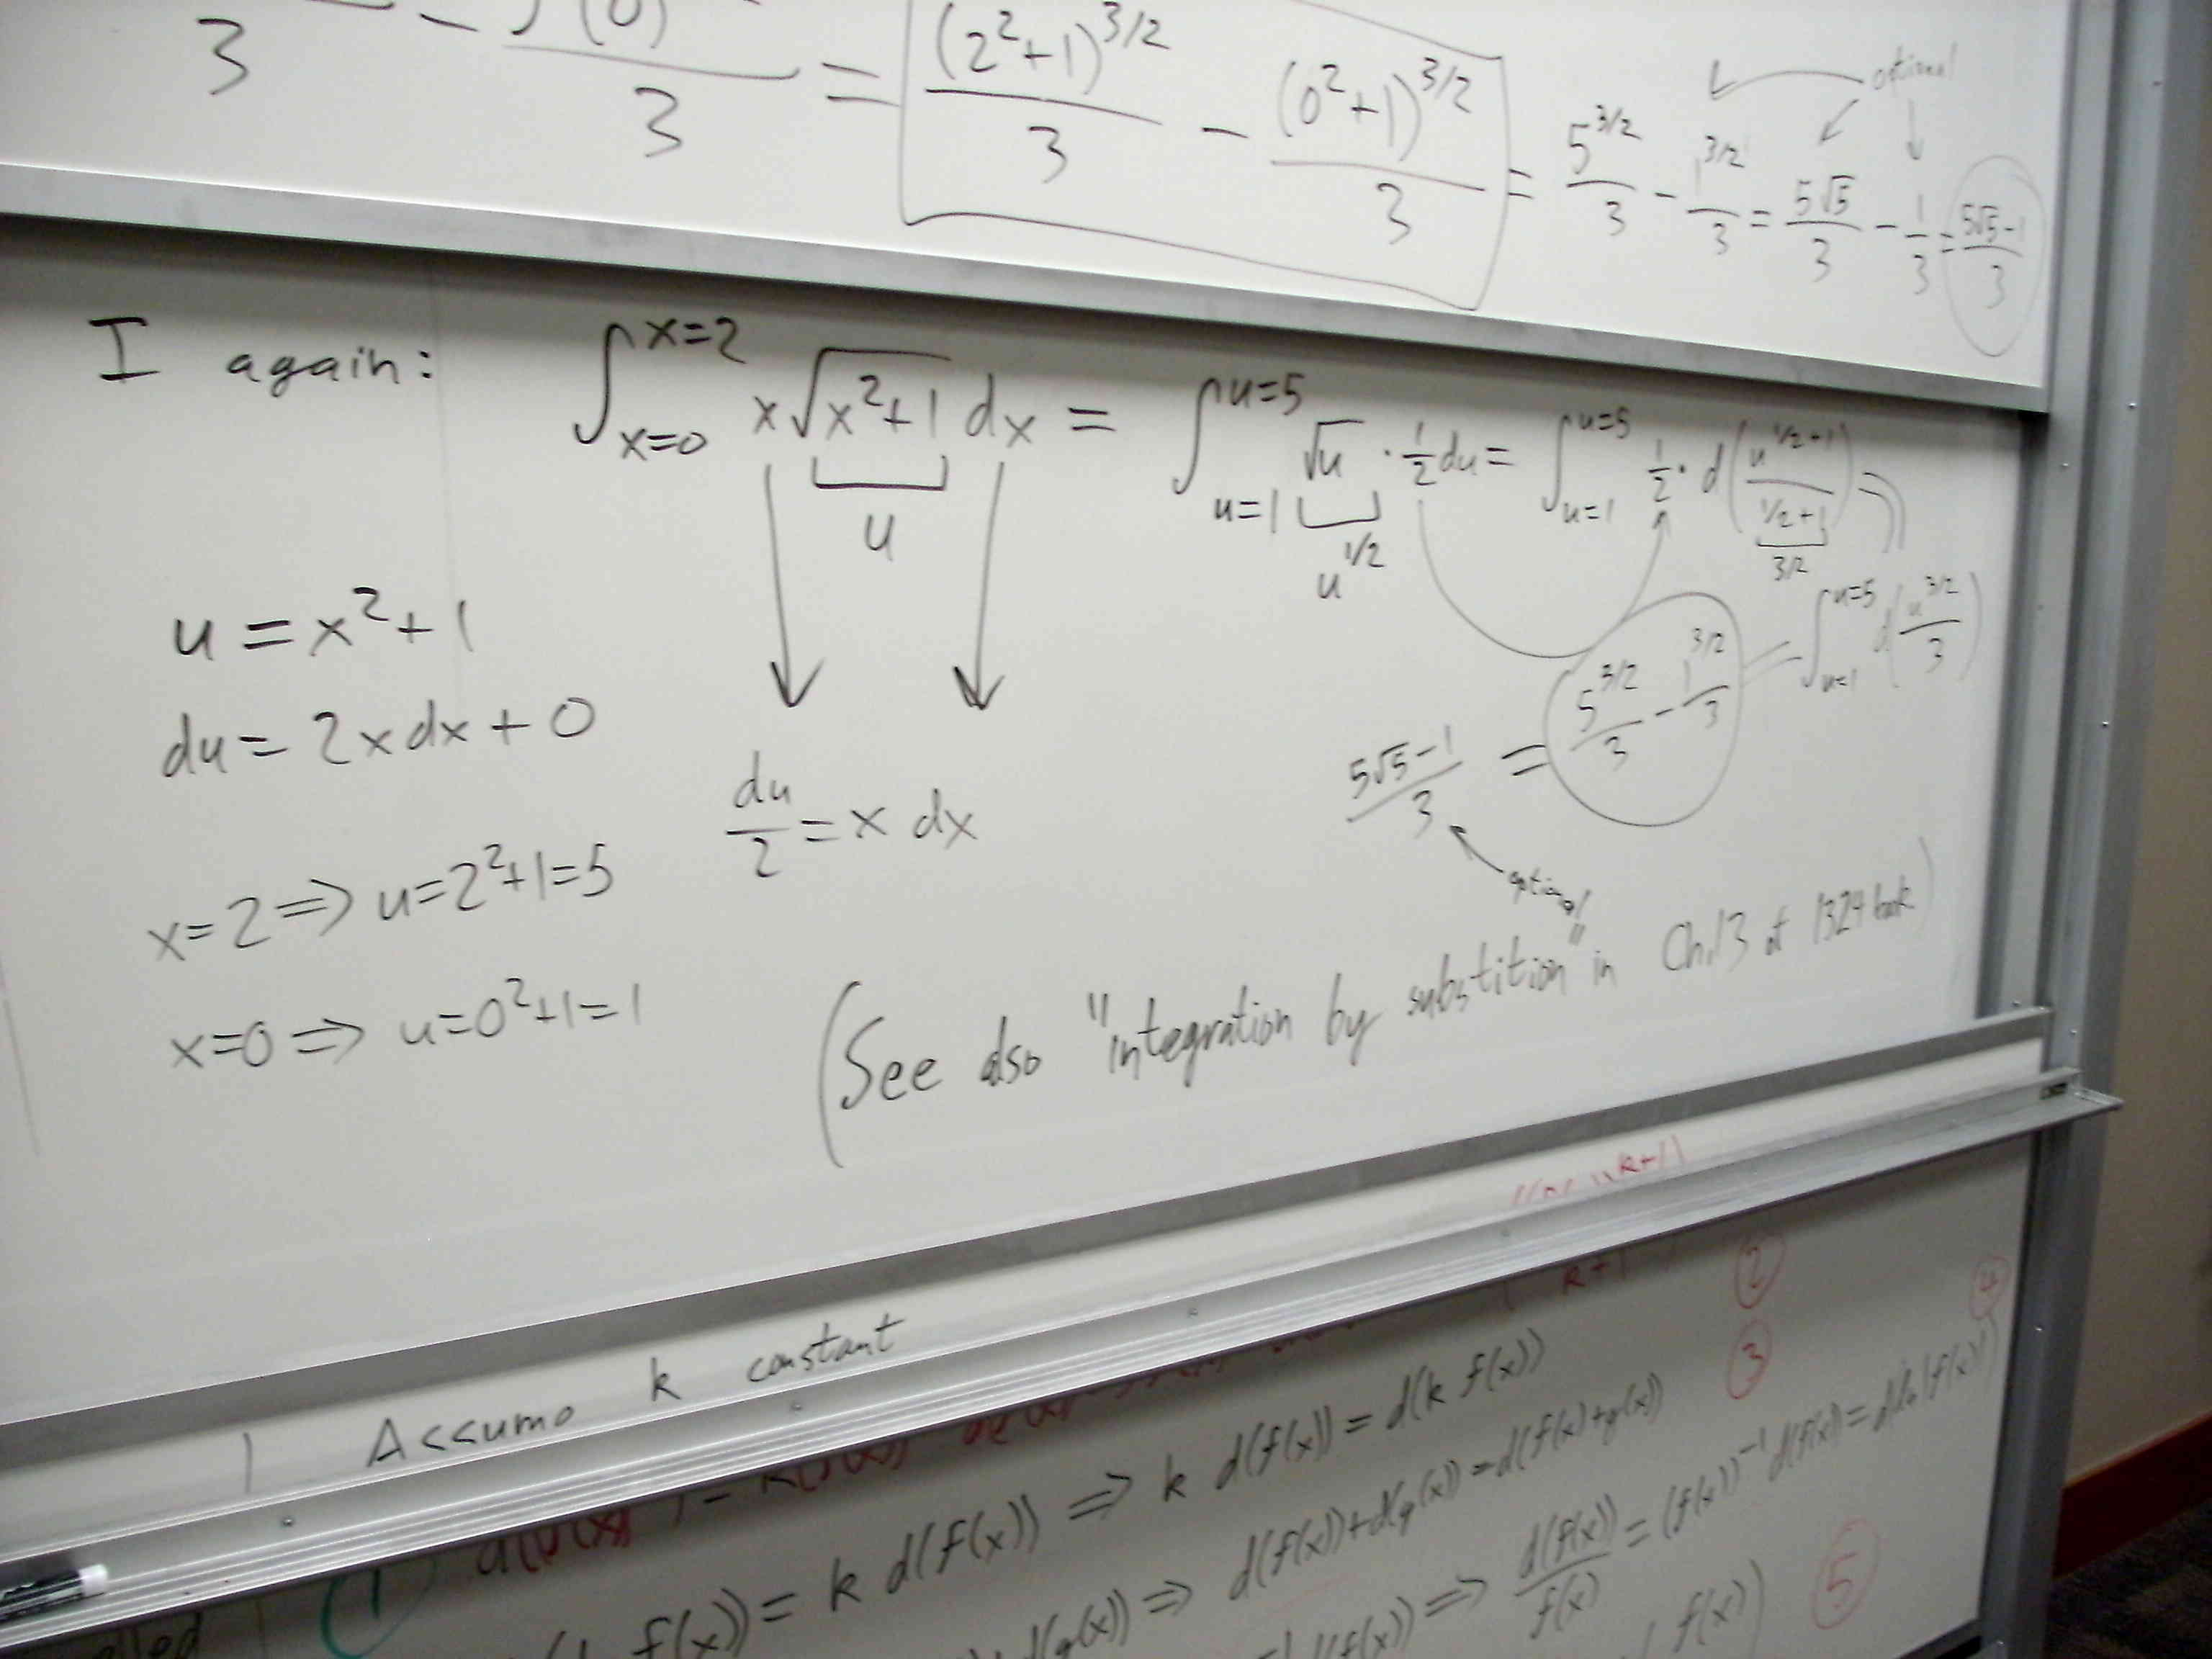 3 - f(0) / 3 = (2²+1)^3/2 / 3 - (0²+1)^3/2 / 3 = 5^3/2 / 3 - 1^3/2 / 3 = 5√5 / 3 - 1/3 = (5√5-1) / 3
optional
I again: ∫_{x=0}^{x=2} x√(x²+1) dx = ∫_{u=1}^{u=5} √u · 1/2 du = ∫_{u=1}^{u=5} 1/2 · d(u^{1/2+1} / (1/2+1)) =
u
u^1/2
3/2
= ∫_{u=1}^{u=5} d(u^3/2 / 3)
u = x²+1
du = 2x dx + 0
du/2 = x dx
(5√5-1) / 3 = 5^3/2 / 3 - 1^3/2 / 3
optional
x=2 ⇒ u=2²+1=5
x=0 ⇒ u=0²+1=1
(See also "integration by substition" in Ch.13 of 1324 book)
k+1
k+1 ②
Assume k constant
③ ④
① f(x)) = k d(f(x)) ⇒ k d(f(x)) = d(k f(x))
d(g(x)) ⇒ d(f(x))+d(g(x)) = d(f(x)+g(x))
d(f(x)) ⇒ d(f(x)) / f(x) = (f(x))^-1 d(f(x)) = d(ln|f(x)|)
f(x)) ⑤